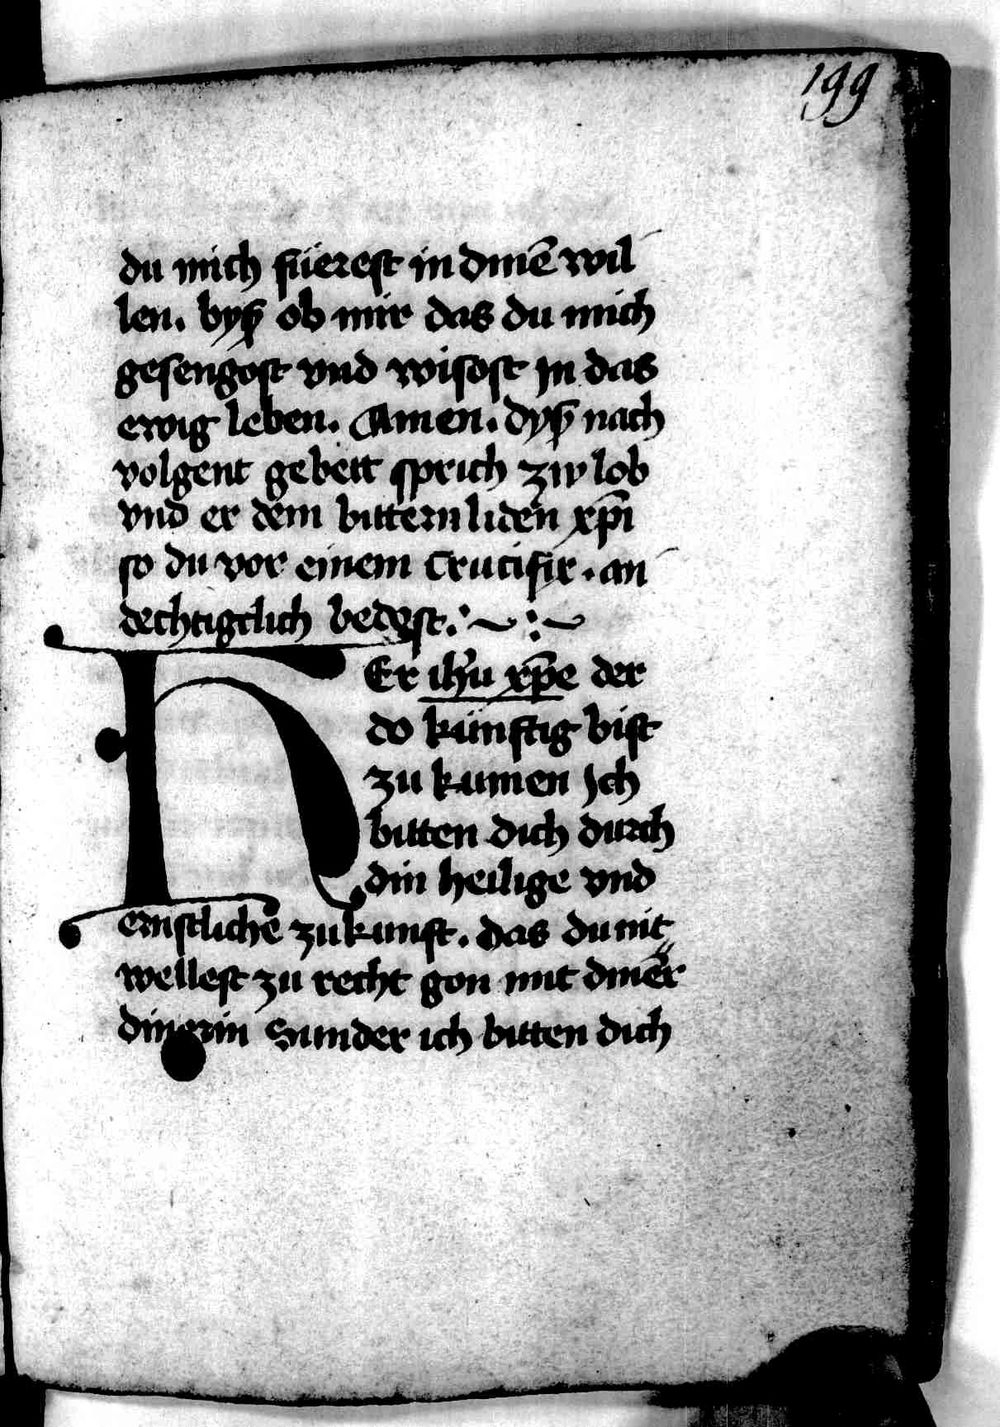 199
du mich füerest in dinē wil
len. byſ ob mir das du mich
gesengost vnd wisost jn das
ewig leben. Amen. dyſ nach
volgent gebett sprich zw lob
vnd er dem bittern liden xp̄i
so du vor einem crucifix. an
dechtigclich bedest:~:~
HEr ih̄u xp̄e der
do künftig bist
zu kumen Ich
bitten dich durch
din heilige vnd
ernstliche zukunft. das du nit
wellest zu recht gon mit diner
dinerin Sunder ich bitten dich